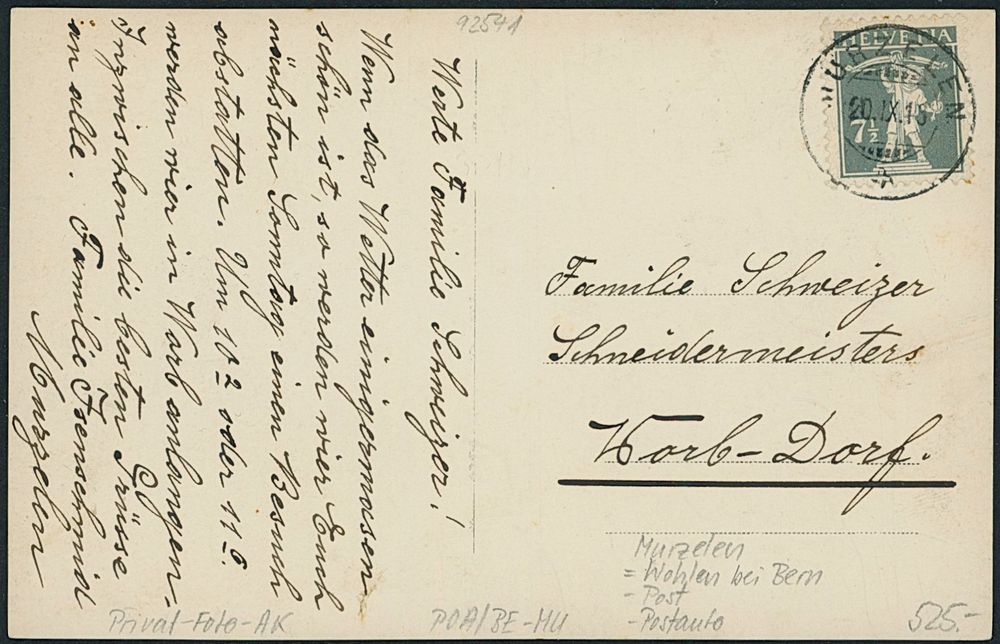 92541
HELVETIA
7½
MURZELEN
20.IX.
Werte Familie Schweizer!
Wenn das Wetter einigermasen
schön ist, so werden wier Euch
nächsten Sonntag einen Besuch
abstatten. Um 10 2 oder 11 6.
werden wier in Worb anlangen.
Inzwischen die besten Grüsse
an alle. Familie Isenschmid
Murzelen
Familie Schweizer
Schneidermeisters
Worb-Dorf.
Murzelen
= Wohlen bei Bern
- Post
- Postauto
Privat-Foto-AK
POA/BE-MU
525.-